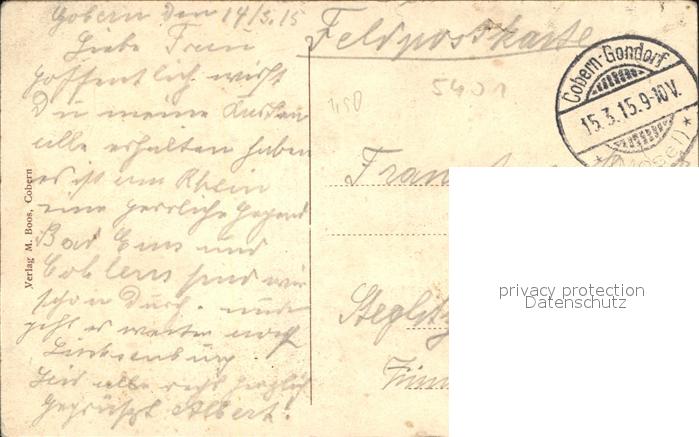 Cobern den 14/3.15
Liebe Frau
hoffentlich wirst
Du meine Karten
alle erhalten haben
es ist am Rhein
eine herrliche Gegend
Bad Ems und
Coblens sind wir
schon durch. nun
geht es weiter nach
Luxenburg
Seid alle recht herzlich
gegrüsst Albert!
Verlag M. Boos, Cobern
Feldpostkarte
450
5401
Cobern-Gondorf
15.3.15.9-10V.
* (Mosel) *
Frau
Steglitz
privacy protection
Datenschutz